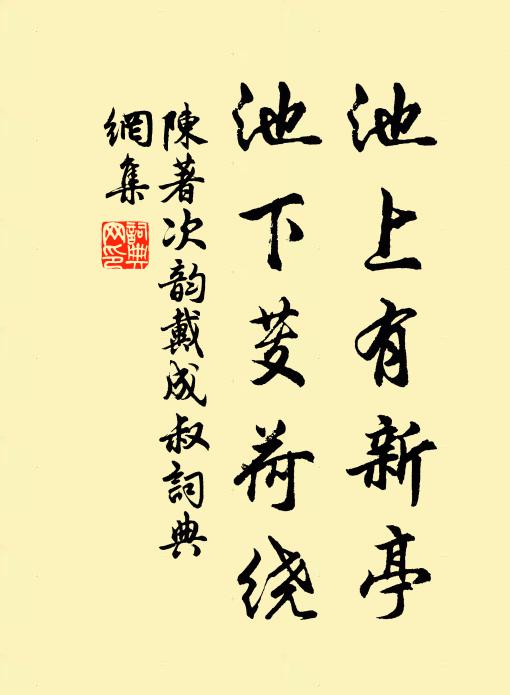 池上有新亭
池下芰荷绕
陳著次韵戴成叔詞典
網集
詞典网印